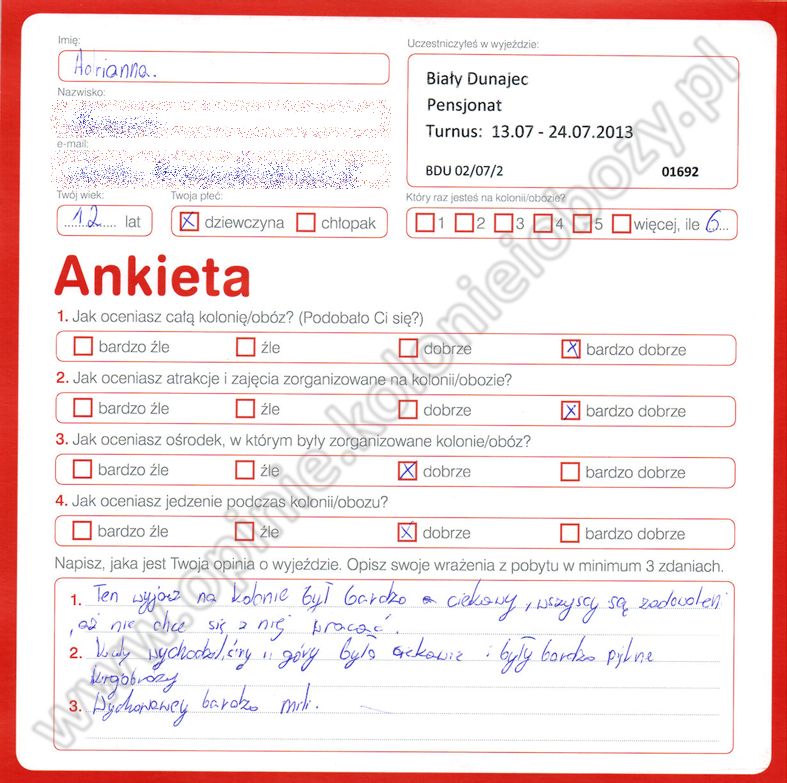 Imię:
Adrianna.
Nazwisko:
e-mail:
Twój wiek:
12 lat
Twoja płeć:
dziewczyna chłopak
Uczestniczyłeś w wyjeździe:
Biały Dunajec
Pensjonat
Turnus: 13.07 - 24.07.2013
BDU 02/07/2 01692
Który raz jesteś na kolonii/obozie?
1 2 3 4 5 więcej, ile 6...
Ankieta
1. Jak oceniasz całą kolonię/obóz? (Podobało Ci się?)
bardzo źle źle dobrze bardzo dobrze
2. Jak oceniasz atrakcje i zajęcia zorganizowane na kolonii/obozie?
bardzo źle źle dobrze bardzo dobrze
3. Jak oceniasz ośrodek, w którym były zorganizowane kolonie/obóz?
bardzo źle źle dobrze bardzo dobrze
4. Jak oceniasz jedzenie podczas kolonii/obozu?
bardzo źle źle dobrze bardzo dobrze
Napisz, jaka jest Twoja opinia o wyjeździe. Opisz swoje wrażenia z pobytu w minimum 3 zdaniach.
1. Ten wyjazd na kolonie był bardzo ciekawy, wszyscy są zadowoleni
, aż nie chce się z niej wracać.
2. góry było ciekawie i były bardzo piękne
krajobrazy
3. Wychowawcy bardzo mili.
www.opinie.kolonieiobozy.pl